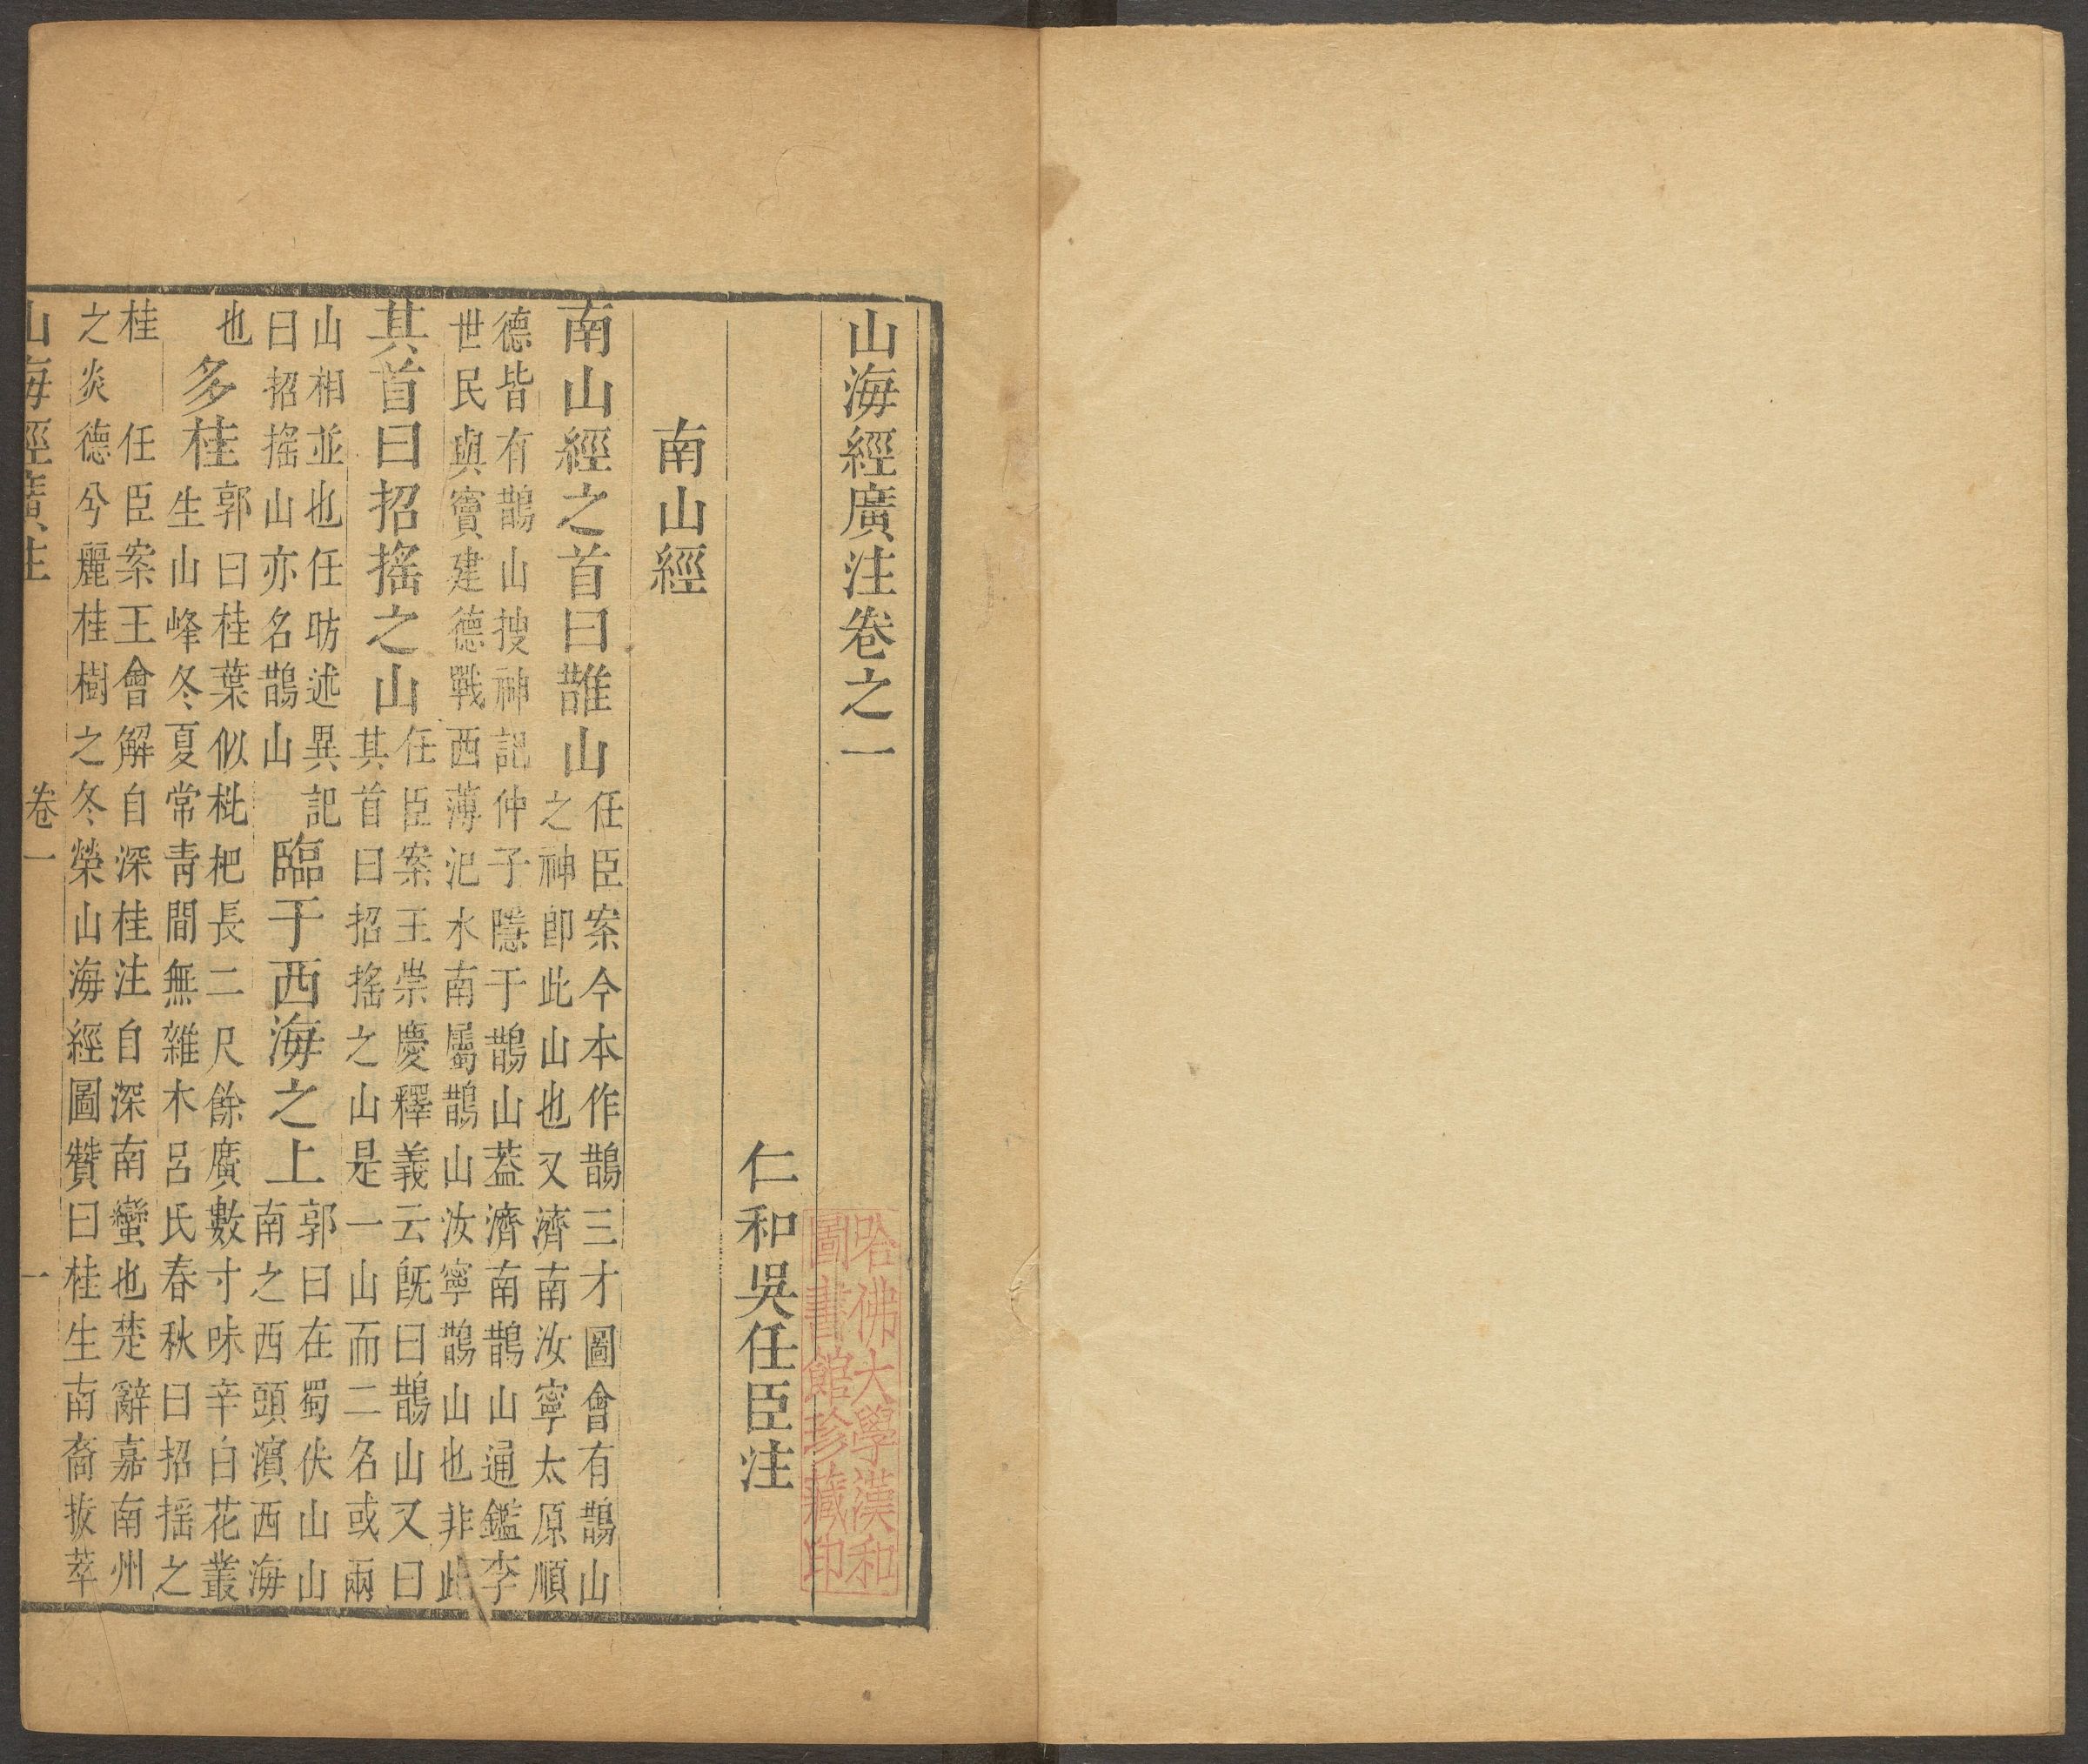 山海經廣注卷之一
仁和吳任臣注
南山經
南山經之首曰䧿山任臣案今本作鵲三才圖會有鵲山
之神卽此山也又濟南汝寧太原順
德皆有鵲山搜神記仲子隱于鵲山葢濟南鵲山通鑑李
世民與竇建德戰西薄汜水南屬鵲山汝寧鵲山也非此
其首曰招搖之山任臣案王崇慶釋義云旣曰鵲山又曰
其首曰招搖之山是一山而二名或兩
山相並也任昉述異記
曰招搖山亦名鵲山
臨于西海之上郭曰在蜀伏山山
南之西頭濱西海
也
多桂郭曰桂葉似枇杷長二尺餘廣數寸味辛白花叢
生山峰冬夏常靑間無雜木呂氏春秋曰招摇之
桂 任臣案王會解自深桂注自深南蠻也楚辭嘉南州
之炎德兮麗桂樹之冬榮山海經圖贊曰桂生南裔拔萃
山海經廣注 卷一 一
哈佛大學漢和
圖書館珍藏印